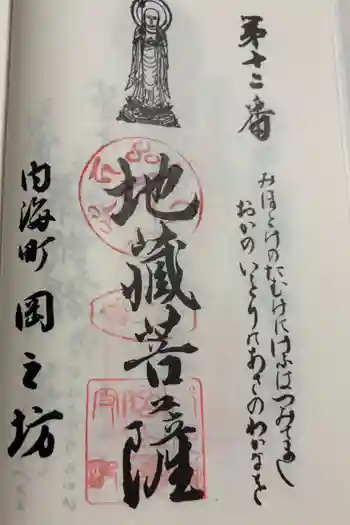 第十二番
みほとけのたむけにけふはつみまし
おかのいとりにあさのわかなを
地蔵菩薩
内海町 岡之坊